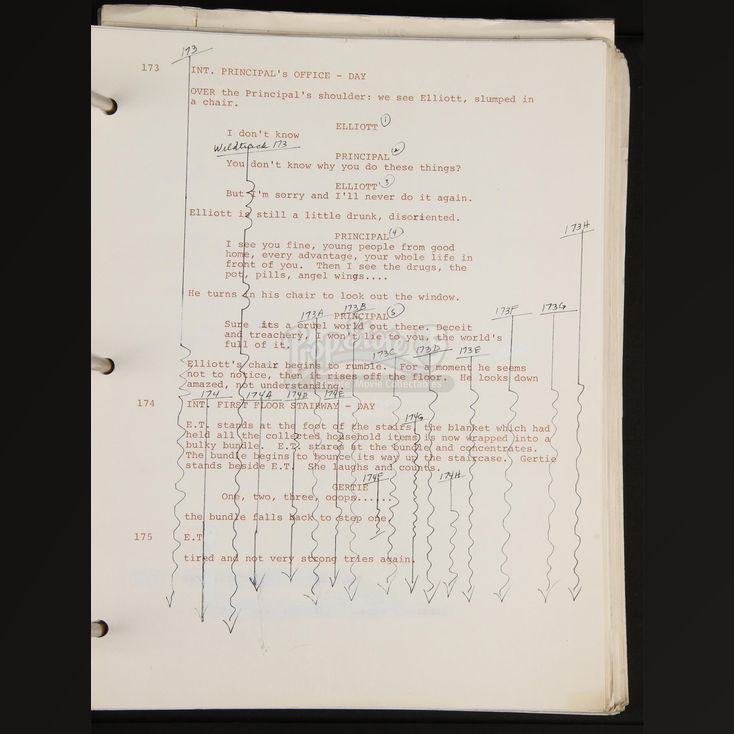 173
173 INT. PRINCIPAL's OFFICE - DAY
OVER the Principal's shoulder: we see Elliott, slumped in
a chair.
ELLIOTT 1
I don't know
Wildtrack 173
PRINCIPAL 2
You don't know why you do these things?
ELLIOTT 3
But I'm sorry and I'll never do it again.
Elliott is still a little drunk, disoriented.
173H
PRINCIPAL 4
I see you fine, young people from good
home, every advantage, your whole life in
front of you. Then I see the drugs, the
pot, pills, angel wings....
He turns in his chair to look out the window.
173A 173B 173F 173G
PRINCIPAL 5
Sure its a cruel world out there. Deceit
and treachery, I won't lie to you, the world's
full of it.
173C 173D 173E
Elliott's chair begins to rumble. For a moment he seems
not to notice, then it rises off the floor. He looks down
amazed, not understanding.
174 174A 174D 174E
174 INT. FIRST FLOOR STAIRWAY - DAY
174G
E.T. stands at the foot of the stairs, the blanket which had
held all the collected household items is now wrapped into a
bulky bundle. E.T. stares at the bundle and concentrates.
The bundle begins to bounce its way up the staircase. Gertie
stands beside E.T. She laughs and counts.
174F 174H
GERTIE
One, two, three, ooops......
the bundle falls back to step one.
175 E.T
tired and not very strong tries again.
Propstore
Movie Collectables